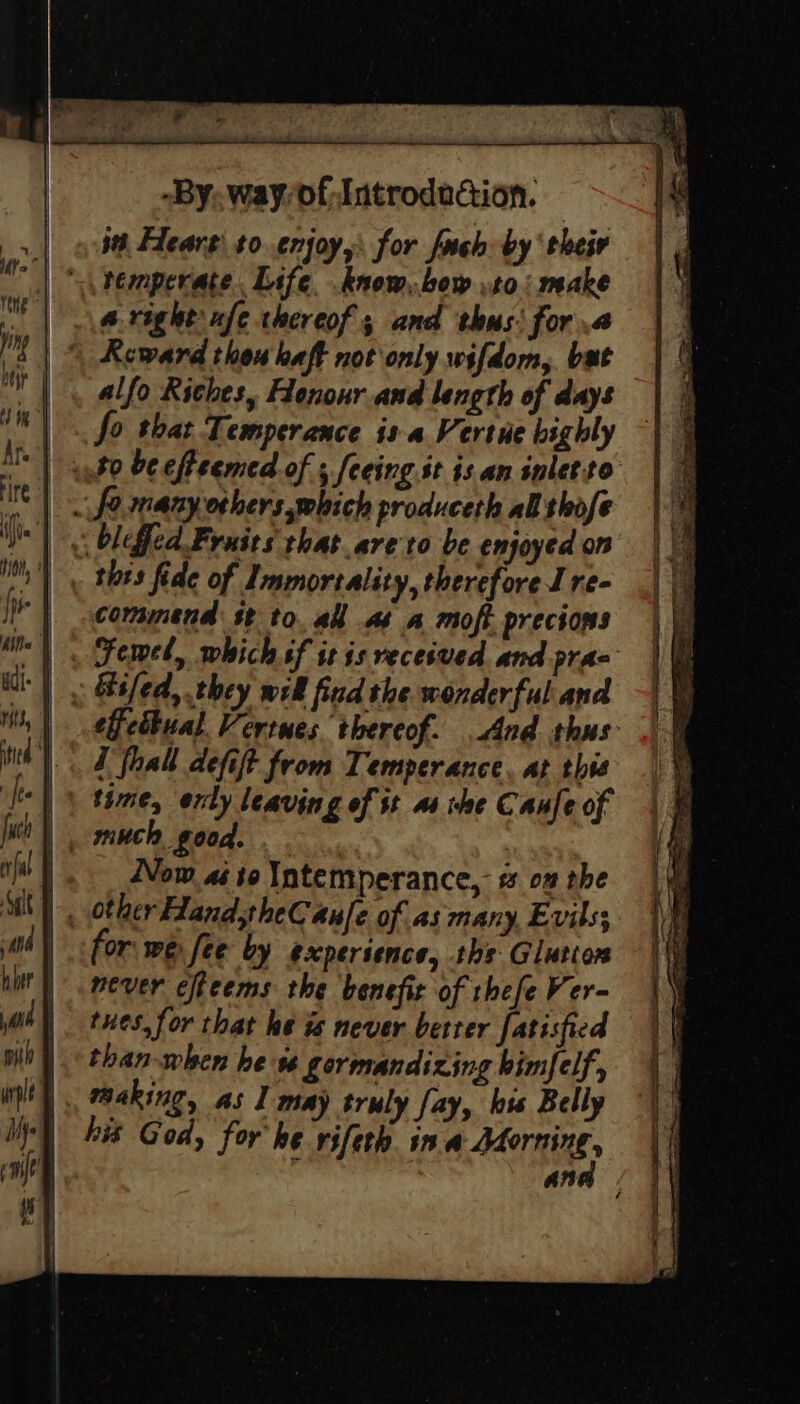 By way of Introduction.
in Heart to enjoy, for ſuch by their
temperate Life know how to make
a right uſe thereof; and thus for a
Reward thou haſt not only wiſdom, but
alſo Riches, Honour and length of days
ſo that Temperance is a Vertue highly
to be eſteemed of; ſeeing it is an inlet to
ſo many others, which produceth all thoſe
bleſſed Fruits that are to be enjoyed on
this ſide of Immortality, therefore I re-
commend it to all as a moſt precious
Jewel, which if it is received and pra-
ctiſed, they will find the wonderful and
effectual Vertues thereof. And thus
I ſhall deſiſt from Temperance at this
time, only leaving of it as the Cauſe of
much good.
Now as to Intemperance, is on the
other Hand, the Cauſe of as many Evils;
for we ſee by experience, the Glutton
never eſteems the benefit of theſe Ver-
tues, for that he is never better ſatisfied
than when he is gormandizing himſelf,
making, as I may truly ſay, his Belly
his God, for he riſeth in a Morning,
and